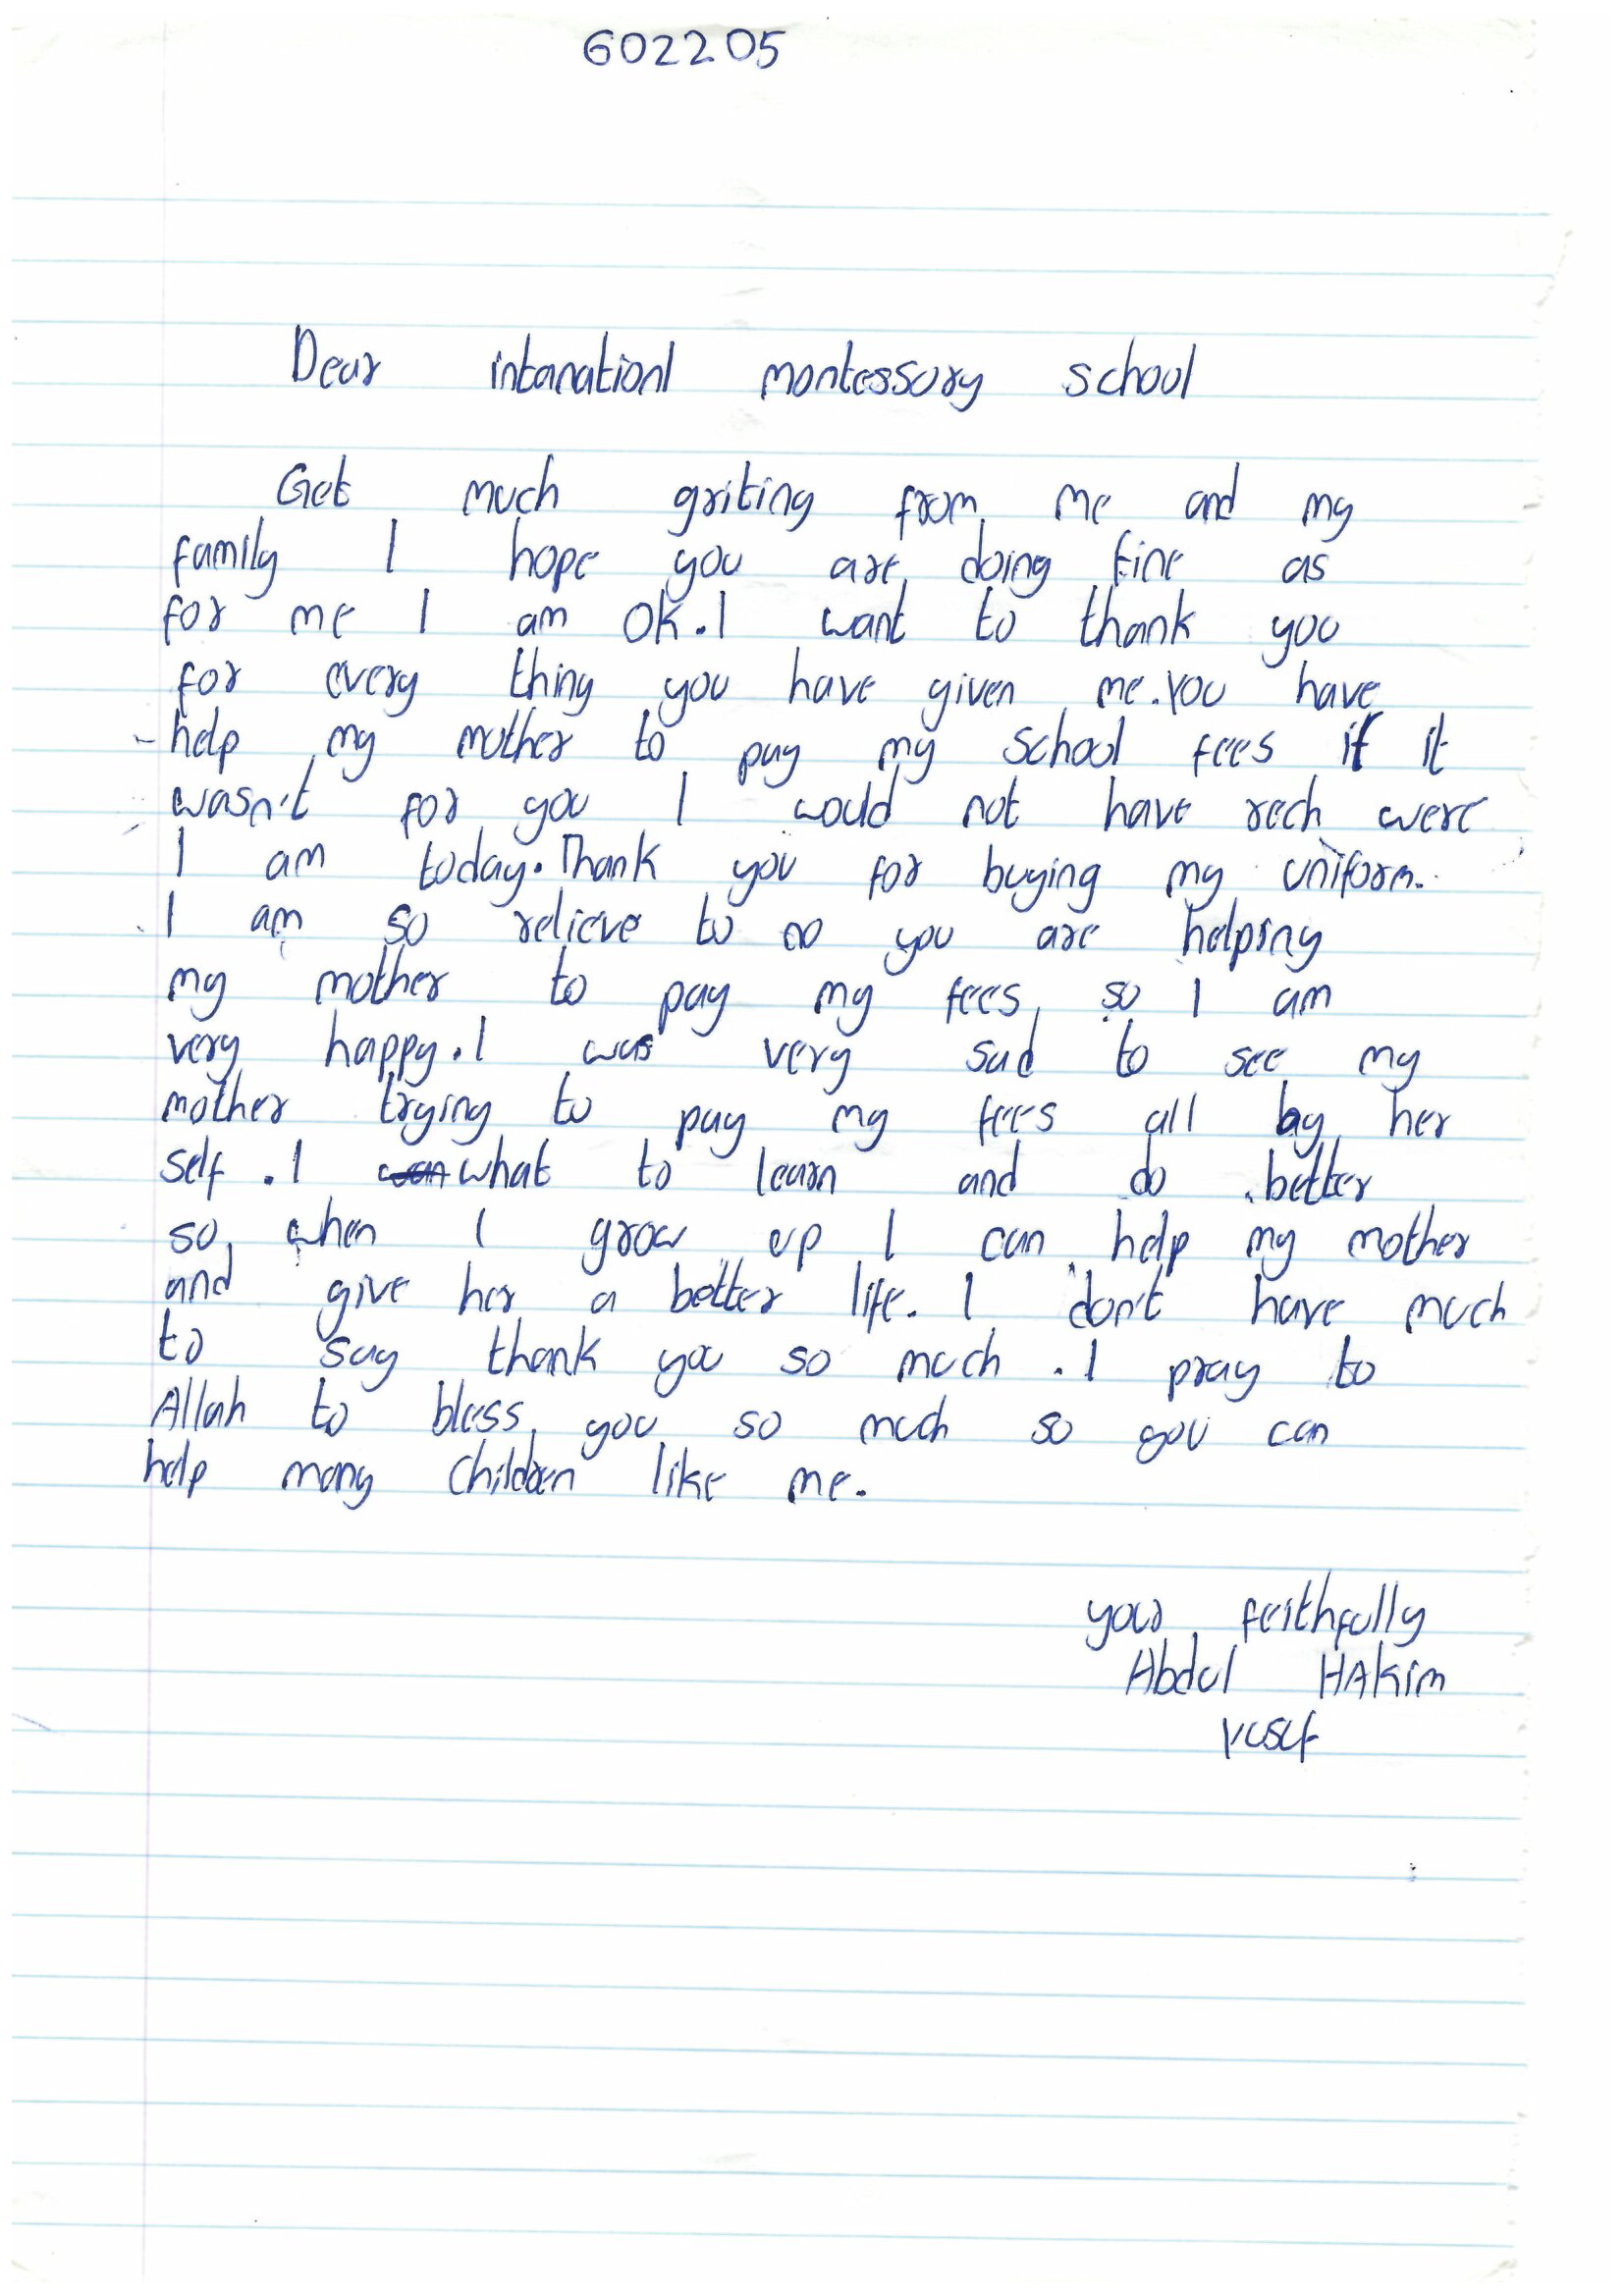 602205
Dear intanationl montessory school
Get much griting from me and my
family I hope you are doing fine as
for me I am OK. I want to thank you
for every thing you have given me. You have
help my mother to pay my school fees if it
wasn't for you I would not have rech were
I am today. Thank you for buying my uniform.
I am so relieve to no you are helping
my mother to pay my fees, so I am
very happy. I was very sad to see my
mother trying to pay my fees all by her
self. I what to learn and do better
so, when I grow up I can help my mother
and give her a better life. I don't have much
to say thank you so much. I pray to
Allah to bless you so much so you can
help many children like me.
your feithfully
Abdul HAkim
Yusuf